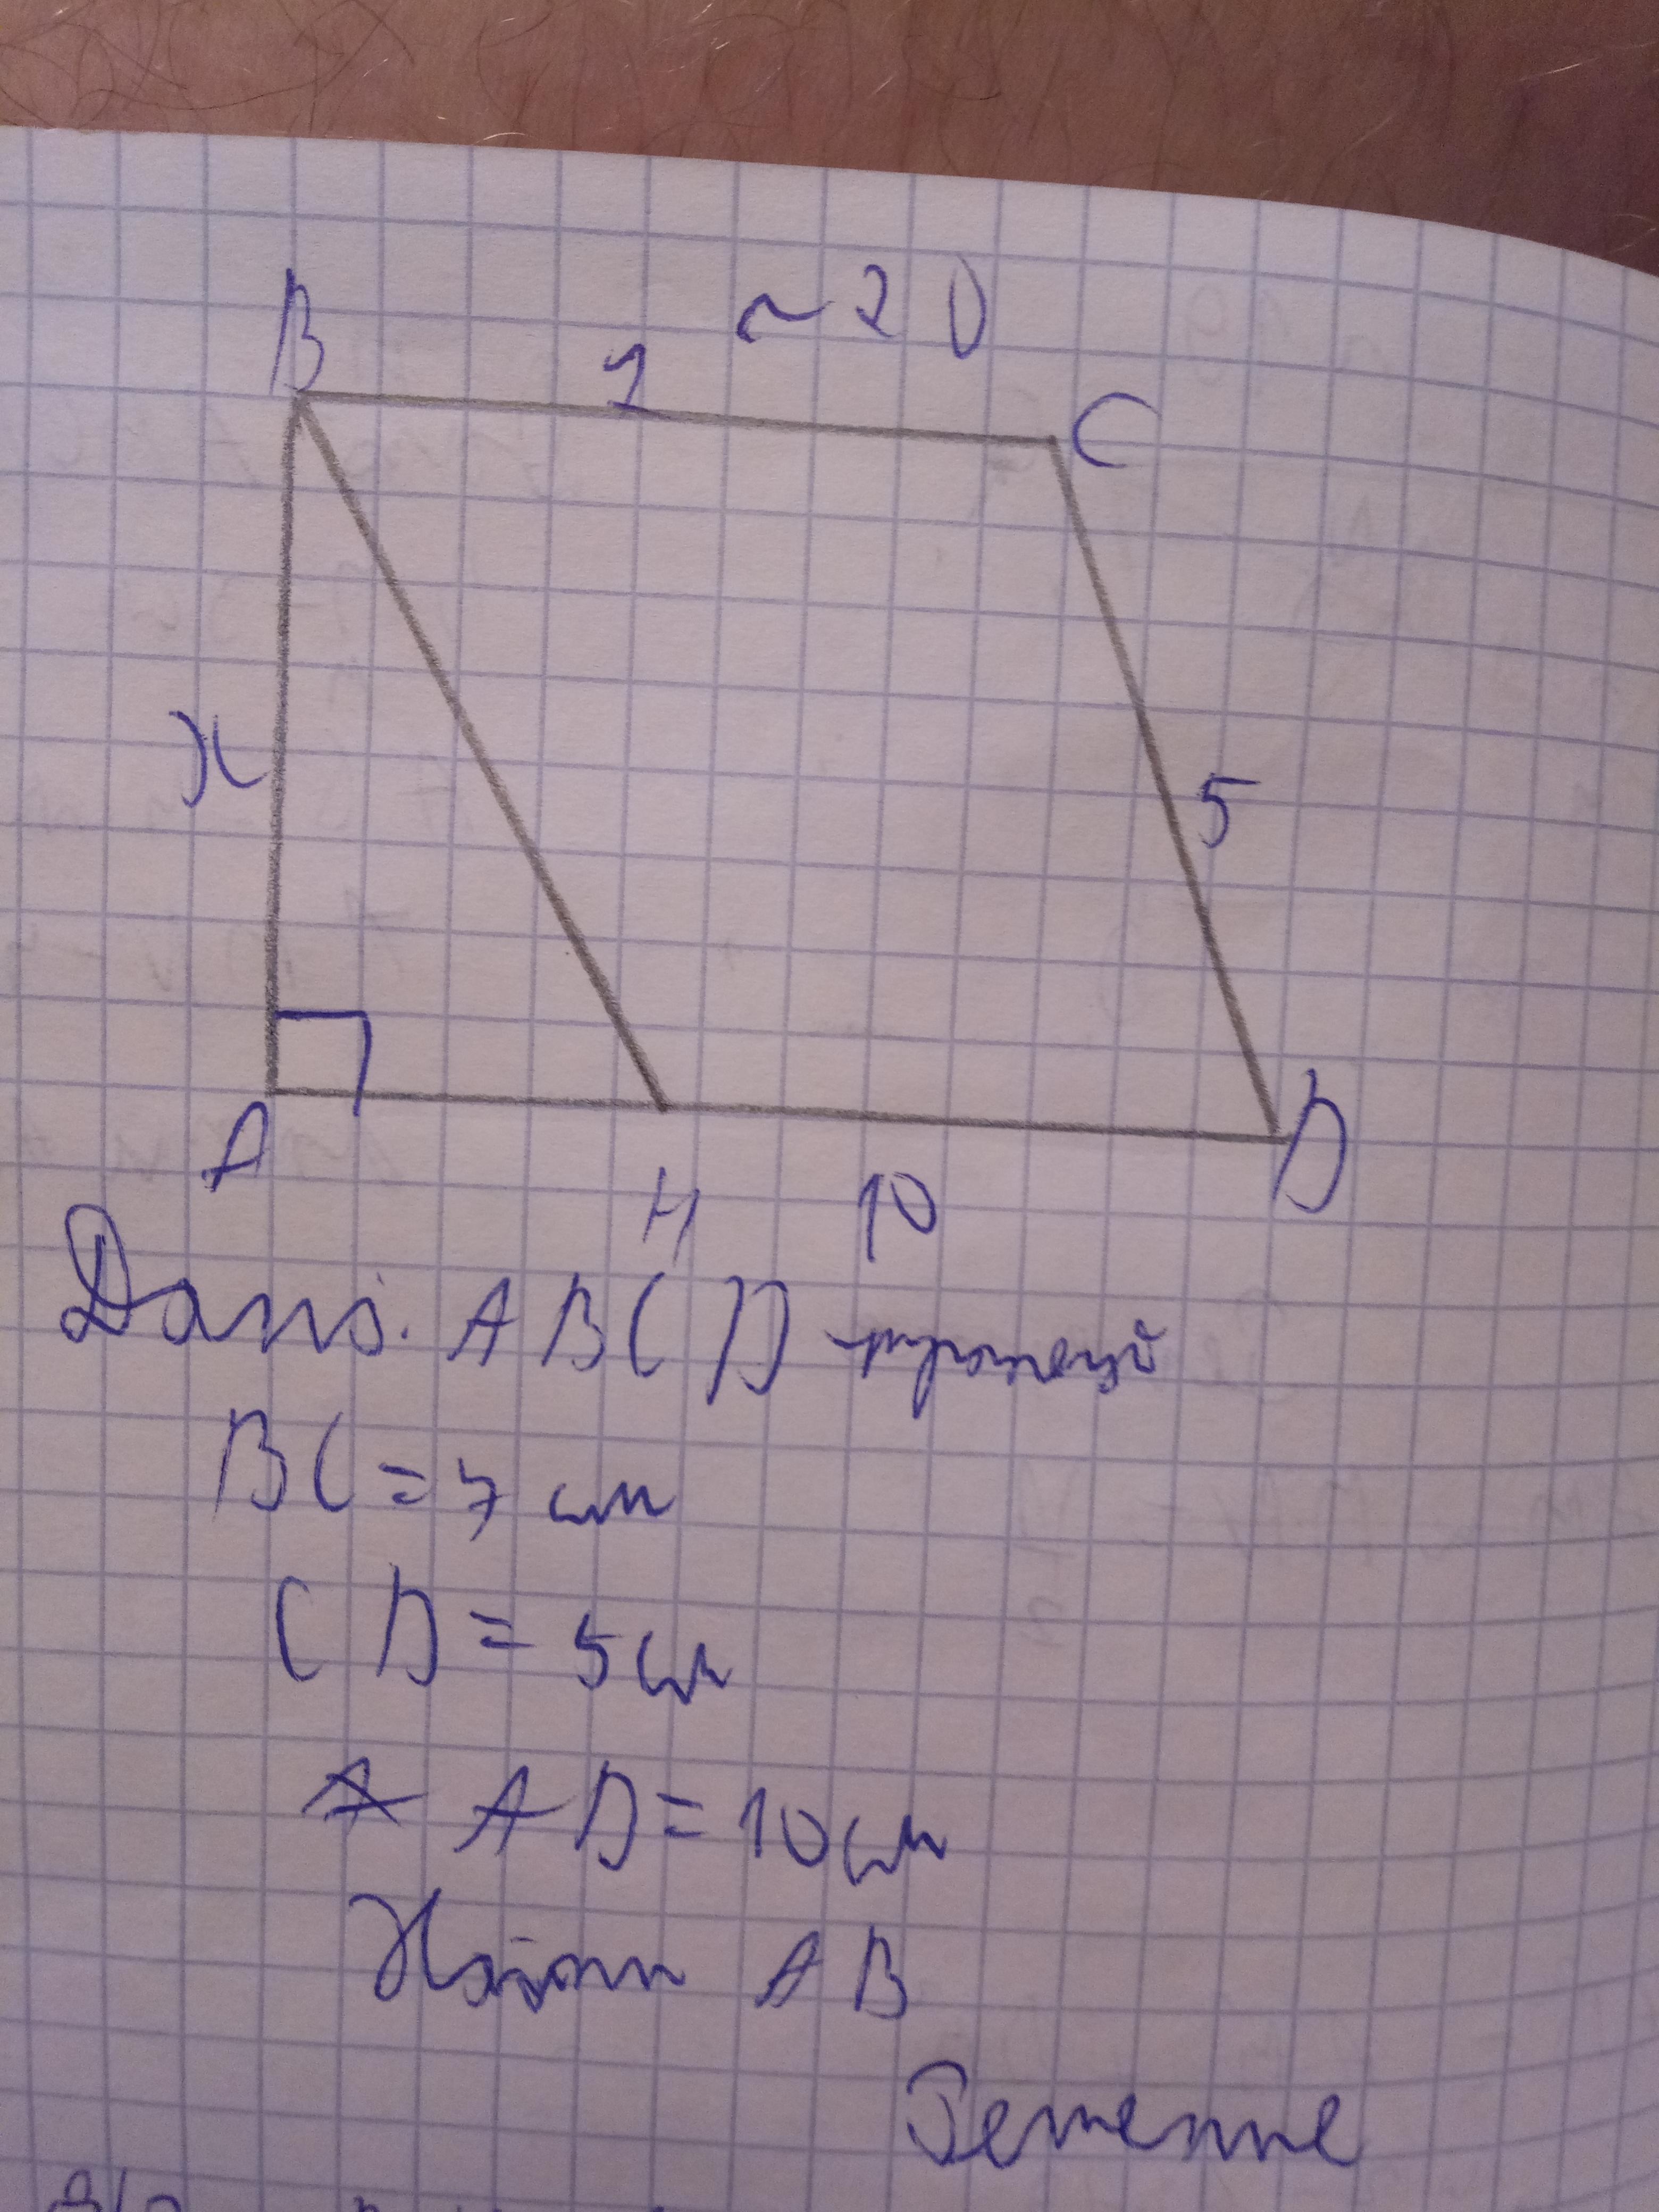 ~20
B 7 C
x 5
A H 10 D
Дано: ABCD - трапеция
BC = 7 см
CD = 5 см
AD = 10 см
Найти AB
Решение